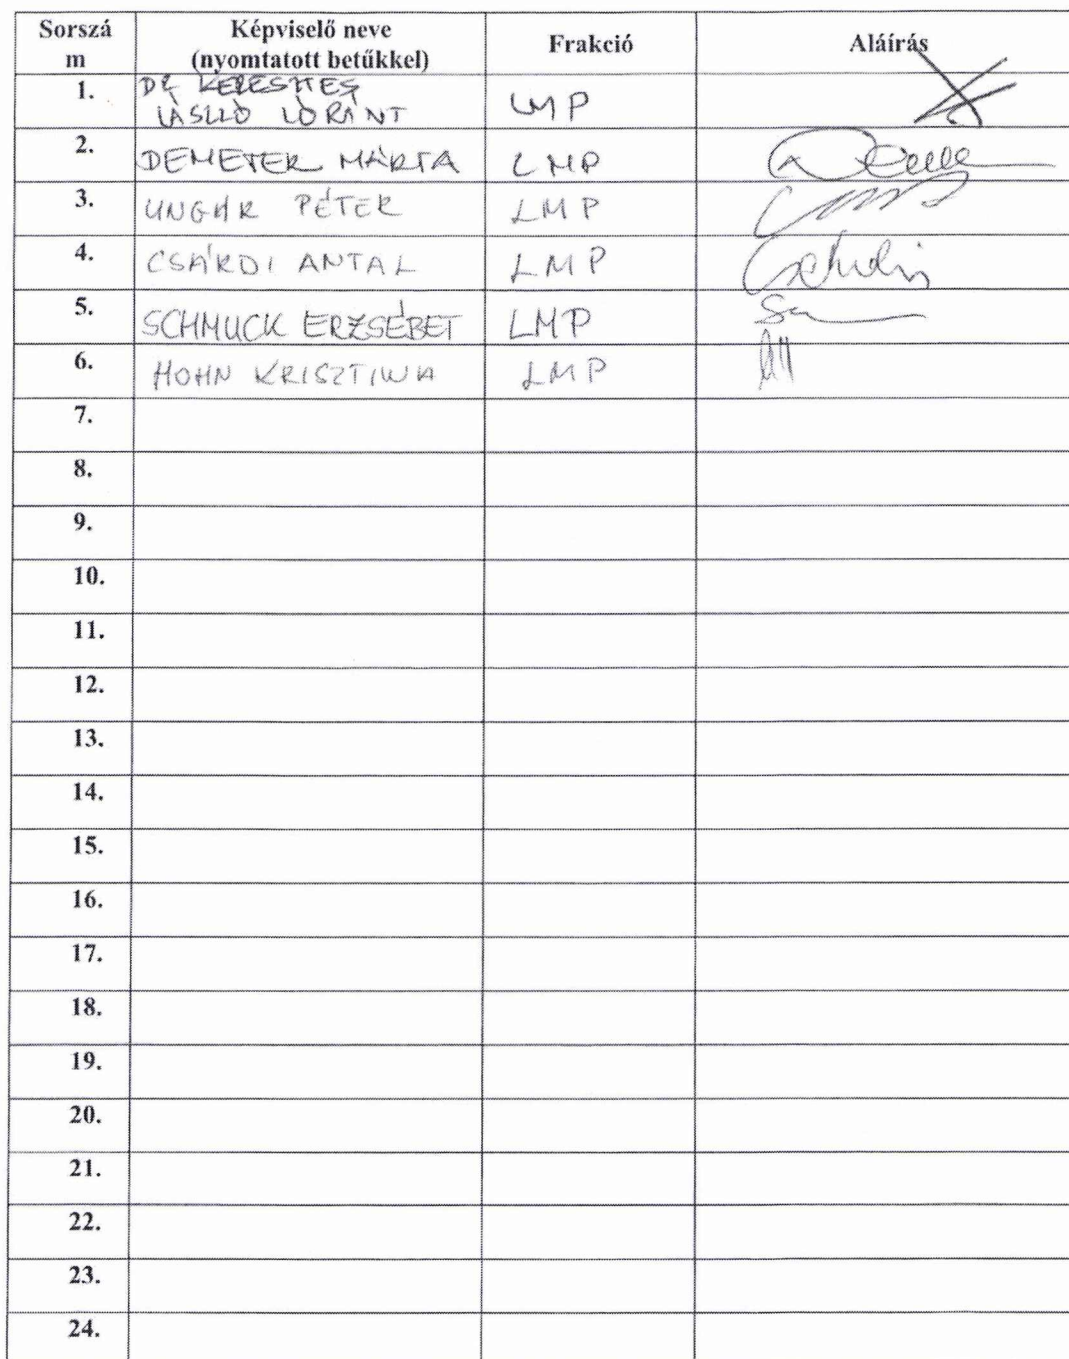 Sorszá
m
Képviselő neve
(nyomtatott betűkkel)
Frakció
Aláírás
1. DR KERESZTES
LÁSZLÓ LÓRÁNT LMP
2. DEMETER MÁRTA LMP
3. UNGÁR PÉTER LMP
4. CSÁRDI ANTAL LMP
5. SCHMUCK ERZSÉBET LMP
6. HOHN KRISZTINA LMP
7.
8.
9.
10.
11.
12.
13.
14.
15.
16.
17.
18.
19.
20.
21.
22.
23.
24.